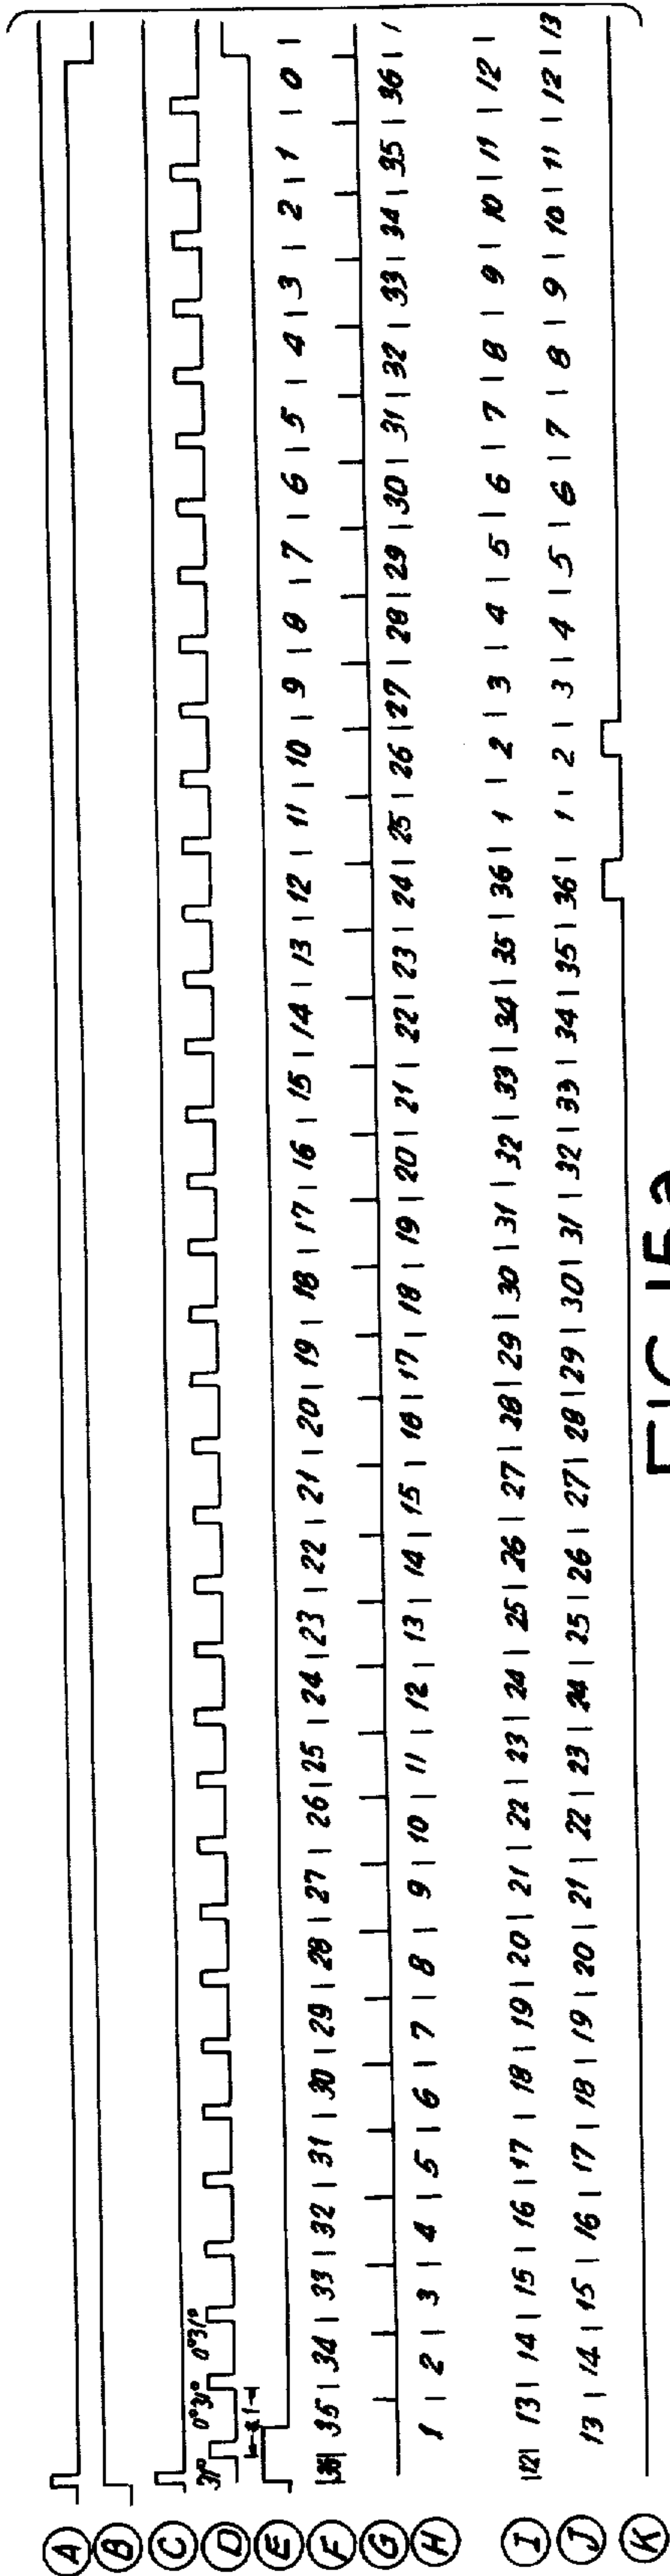 A
B
C
D 31° 0° 31° 0° 31°
E a
F 36 | 35 | 34 | 33 | 32 | 31 | 30 | 29 | 28 | 27 | 26 | 25 | 24 | 23 | 22 | 21 | 20 | 19 | 18 | 17 | 16 | 15 | 14 | 13 | 12 | 11 | 10 | 9 | 8 | 7 | 6 | 5 | 4 | 3 | 2 | 1 | 0 |
G
H 1 | 2 | 3 | 4 | 5 | 6 | 7 | 8 | 9 | 10 | 11 | 12 | 13 | 14 | 15 | 16 | 17 | 18 | 19 | 20 | 21 | 22 | 23 | 24 | 25 | 26 | 27 | 28 | 29 | 30 | 31 | 32 | 33 | 34 | 35 | 36 | 1
I |12| 13 | 14 | 15 | 16 | 17 | 18 | 19 | 20 | 21 | 22 | 23 | 24 | 25 | 26 | 27 | 28 | 29 | 30 | 31 | 32 | 33 | 34 | 35 | 36 | 1 | 2 | 3 | 4 | 5 | 6 | 7 | 8 | 9 | 10 | 11 | 12 |
J 13 | 14 | 15 | 16 | 17 | 18 | 19 | 20 | 21 | 22 | 23 | 24 | 25 | 26 | 27 | 28 | 29 | 30 | 31 | 32 | 33 | 34 | 35 | 36 | 1 | 2 | 3 | 4 | 5 | 6 | 7 | 8 | 9 | 10 | 11 | 12 | 13
K
FIG. 15a